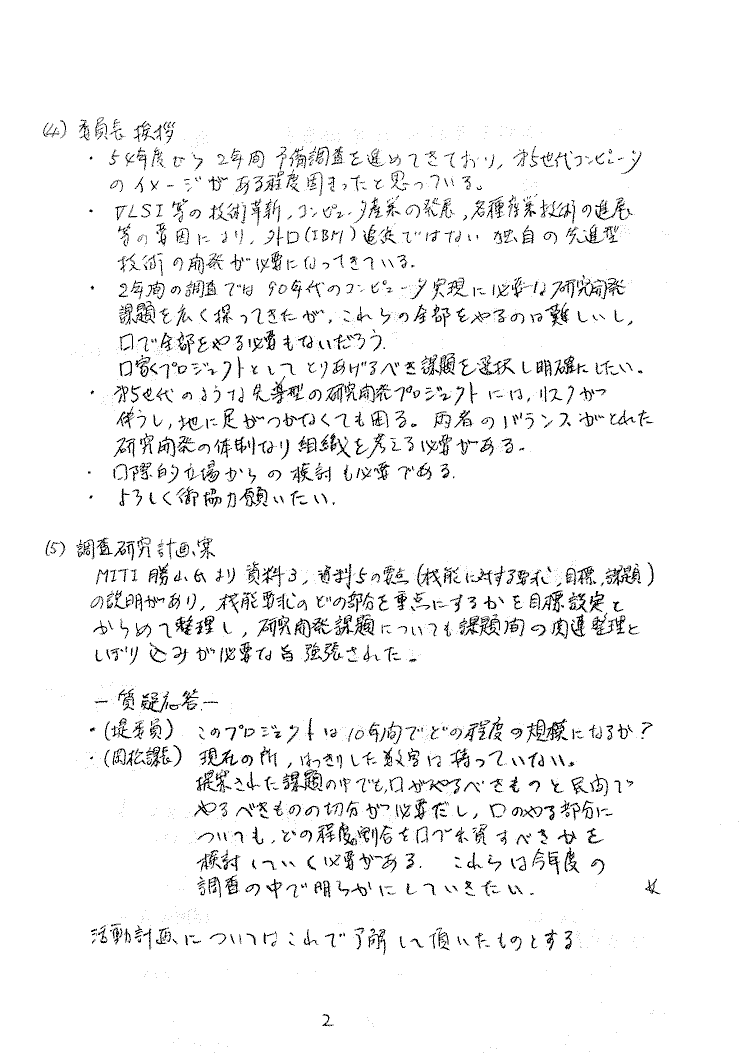 (4) 委員長挨拶
・54年度から2年間予備調査を進めてきており,第5世代コンピュータ
のイメージがある程度固まったと思っている。
・VLSI等の技術革新,コンピュータ産業の発展,各種産業技術の進展
等の要因により,外口(IBM)追従ではない独自の先進型
技術の開発が必要になってきている.
・2年間の調査では90年代のコンピュータ実現に必要な研究開発
課題を広く探ってきたが,これらの全部をやるのは難しいし,
口で全部をやる必要もないだろう.
口家プロジェクトとしてとりあげるべき課題を選択し明確にしたい。
・第5世代のような先導型の研究開発プロジェクトには,リスクが
伴うし,地に足がつかなくても困る。両者のバランスがとれた
研究開発の体制なり組織を考える必要がある。
・口際的立場からの検討も必要である.
・よろしく御協力願いたい.
(5) 調査研究計画案
MITI 勝山氏より資料3,資料5の要点(機能に対する要求,目標,課題)
の説明があり,機能要求のどの部分を重点にするかを目標設定と
からめて整理し,研究開発課題についても課題間の関連整理と
しぼり込みが必要な旨強張された。
―質疑応答―
・(堤委員) このプロジェクトは10年間でどの程度の規模になるか?
・(岡松課長) 現在の所,はっきりした数字は持っていない。
提案された課題の中でも,口がやるべきものと民間で
やるべきものの切分が必要だし,口のやる部分に
ついても,どの程度の割合を口で出資すべきかを
検討していく必要がある. これらは今年度の
調査の中で明らかにしていきたい.
活動計画についてはこれで了解して頂いたものとする
2